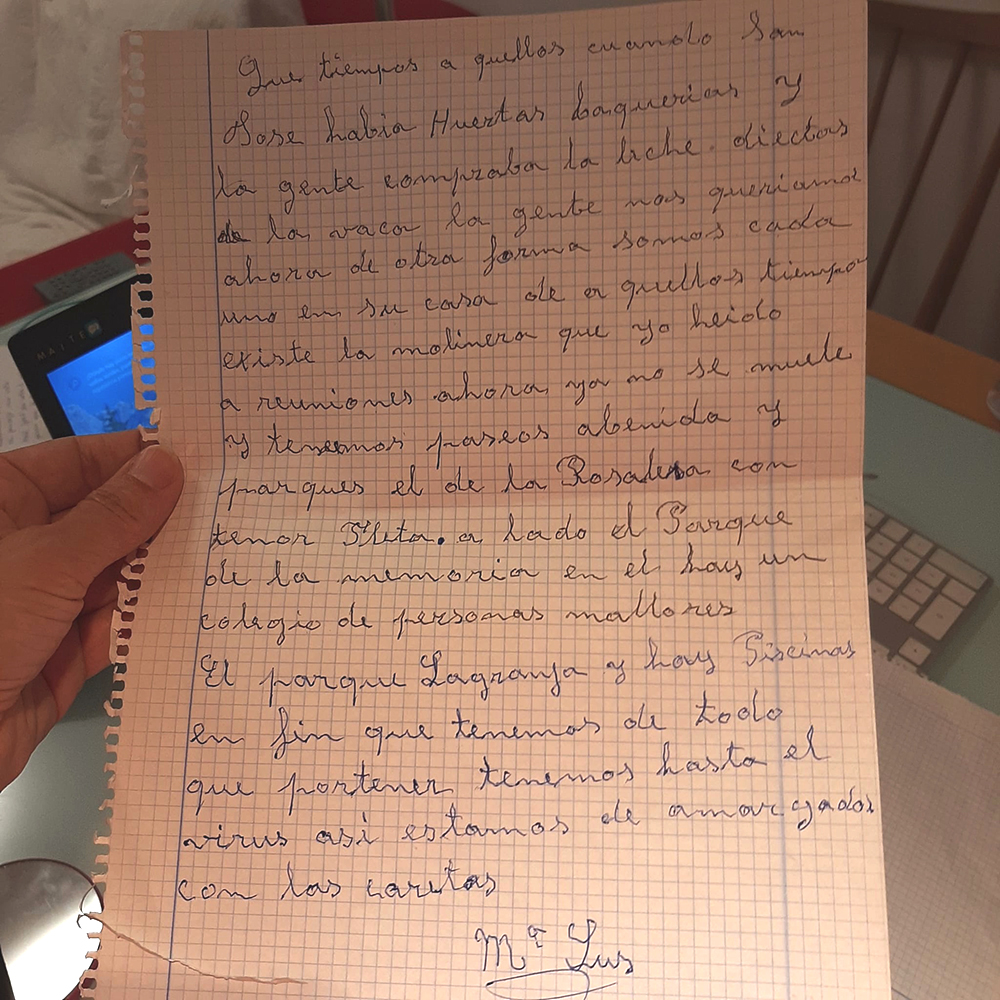 Que tiempos a quellos cuando San
Jose habia Huertas baquerias y
la gente compraba la leche. diectas
de la vaca la gente nos queriamos
ahora de otra forma somos cada
uno en su casa de a quellos tiempo
existe la molinera que yo heido
a reuniones ahora ya no se muele
y tenemos paseos abenida y
parques el de la Rosaleda con
tenor Fleta. a lado el Parque
de la memoria en el hay un
colegio de personas mallores
El parque Lagranja y hay Piscinas
en fin que tenemos de todo
que portener tenemos hasta el
virus asi estamos de amargados
con las caretas
Mª Lus
MAITE